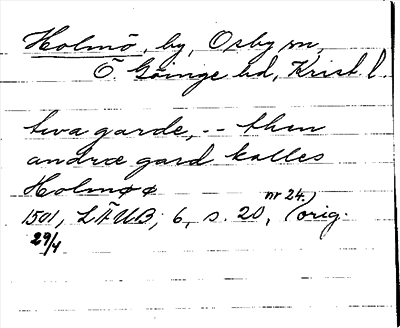 Holmö, by, Osby sn,
Ö. Göinge hd, Krist. l.
twa garde, -- then
andræ gard kalles
Holmøø
nr 24.
1501, LÄUB, 6, s. 20, (orig.
29/4